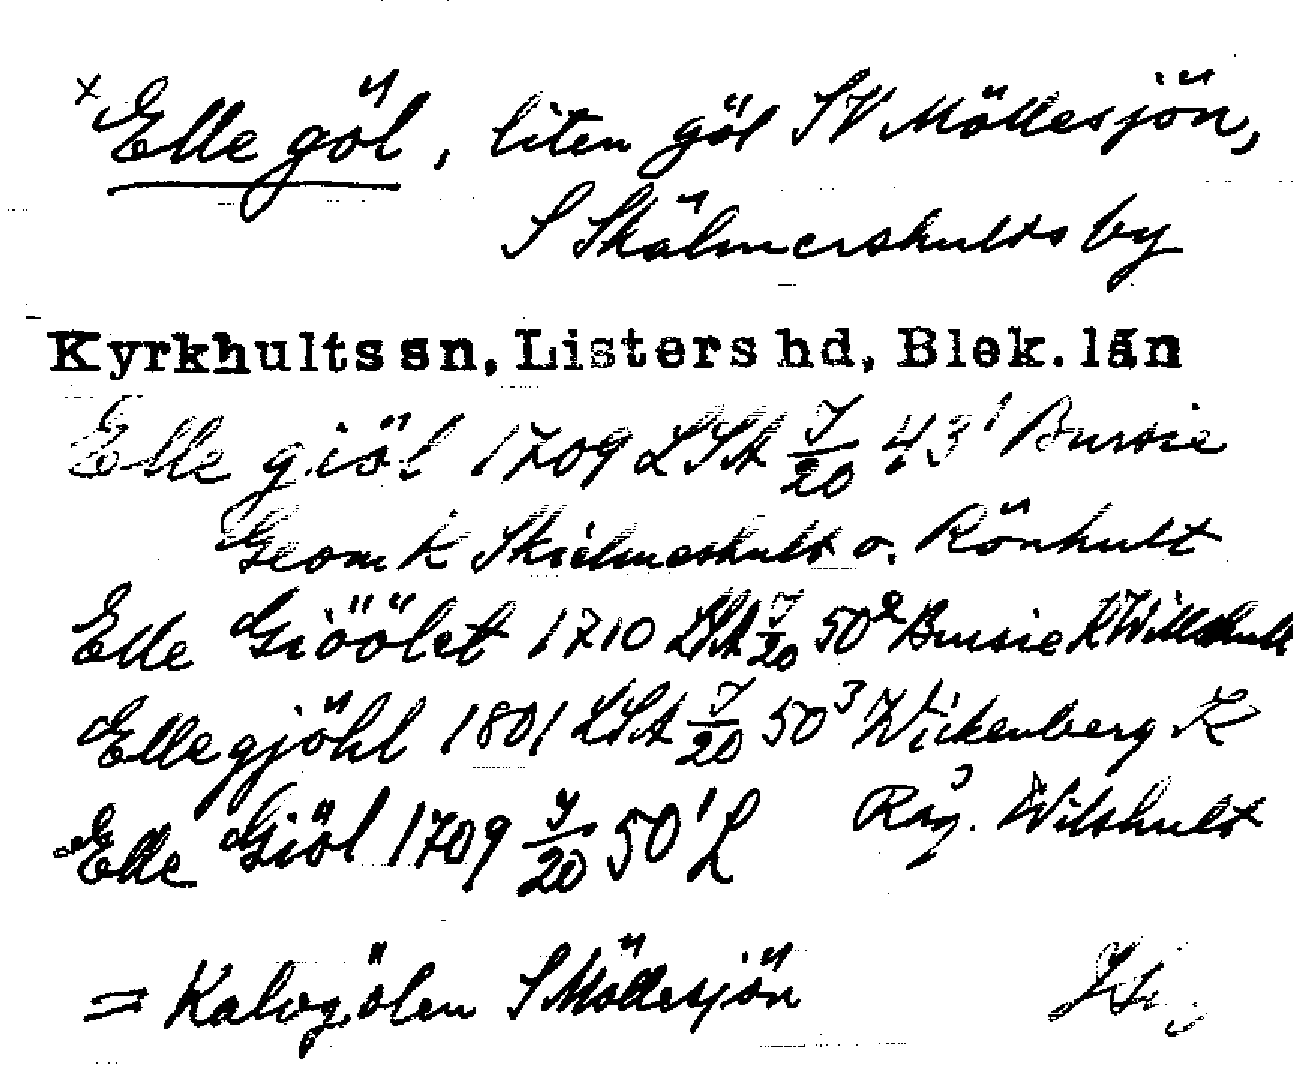 x Elle göl, liten göl SV Möllesjön,
S Skälmershults by
Kyrkhults sn, Listers hd, Blek. län
Elle giöl 1709 LSA 7/20 43¹ Bursie
Geom K Skielmeshult o. Rönhult
Elle Giöölet 1710 LSA 7/20 50² Bursie K Willshult
Ellegjöhl 1801 LSA 7/20 50³ Wickenberg K
Råg. Wilshult
Elle Giöl 1709 7/20 50¹ L
= Kalvgölen S Möllesjön